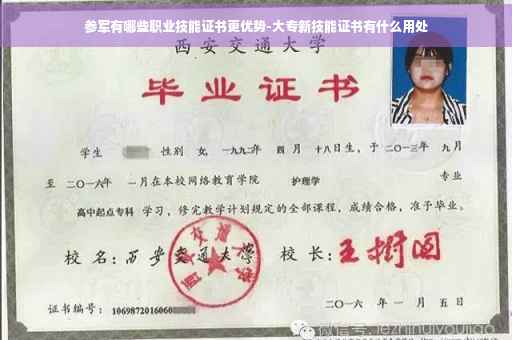 参军有哪些职业技能证书更优势-大专新技能证书有什么用处
西安交通大学
毕业证书
学生 性别 女, 一九九二年 四月 十八日生, 于二〇一三年 九月
至 二〇一六年 一月在本校网络教育学院 护理学 专业
高中起点专科 学习, 修完教学计划规定的全部课程, 成绩合格, 准予毕业。
校名: 西安交通大学 校长: 王树国
西安交通大学
证书编号: 1069872016060
二〇一六年一月五日
微信号: jezhinuiyoujiao